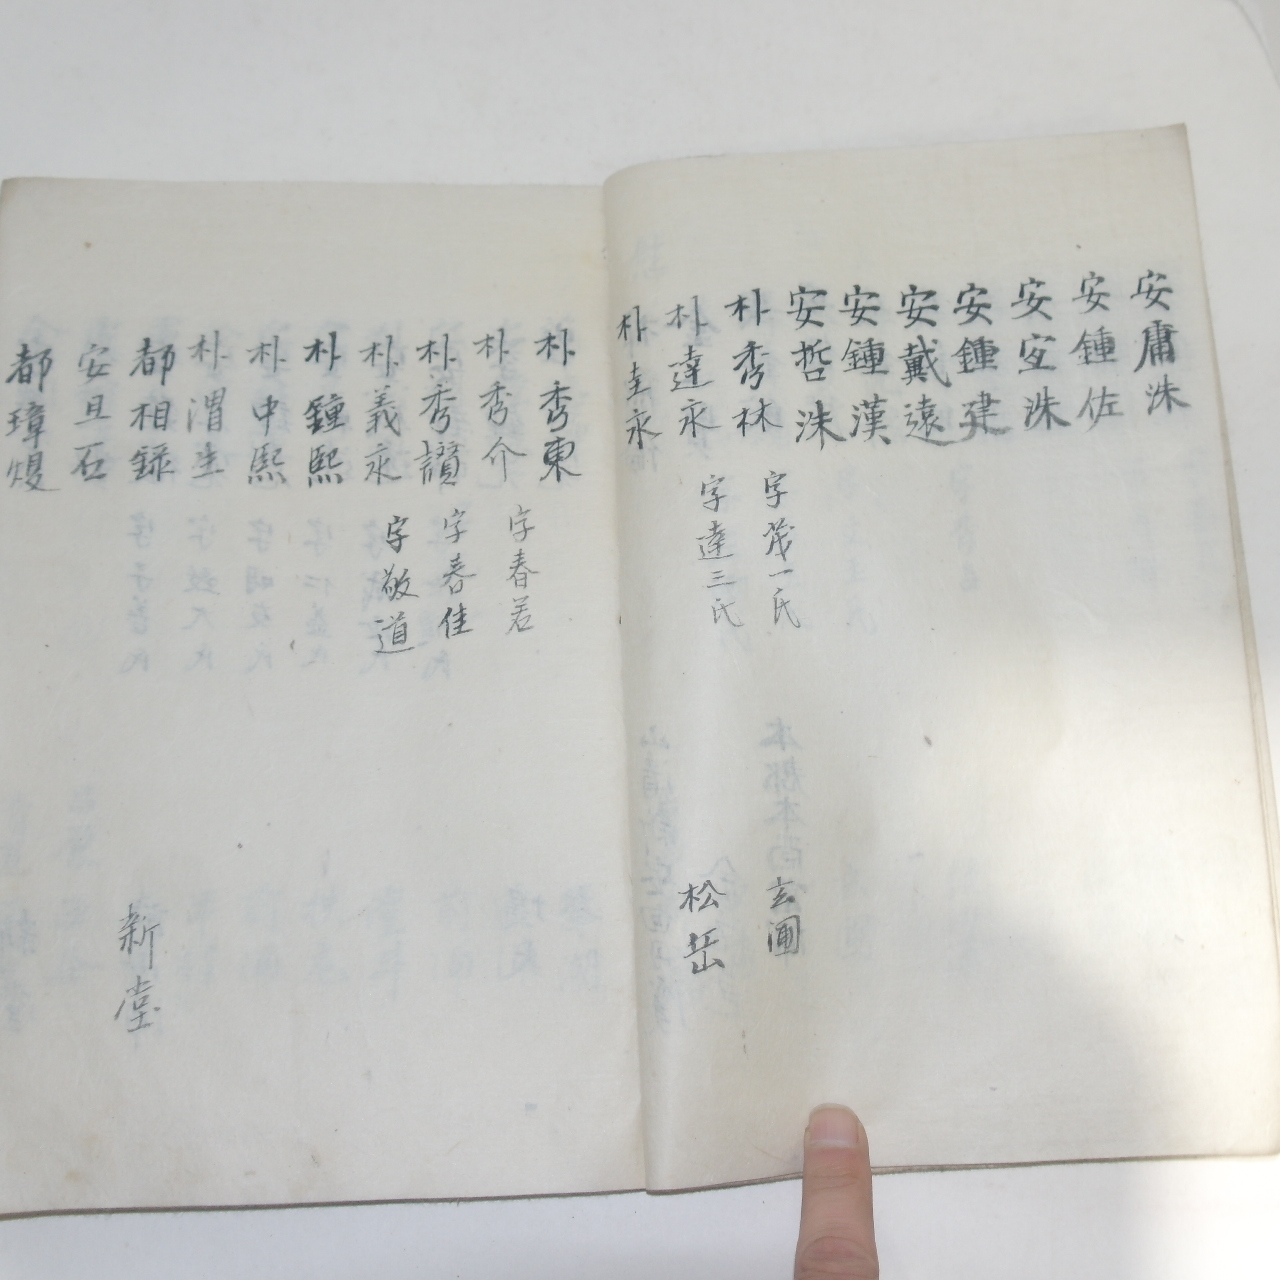 安庸洙
安鍾佐
安宖洙
安鍾建
安戴遠
安鍾漢
安哲洙
朴秀林 字茂一氏 玄圃
朴達永 字達三氏 松岳
朴圭永
朴秀東
朴秀介 字春若
朴秀讚 字春佳
朴義永 字敬道
朴鍾熙
朴中熙
朴渭生
都相錄 新堂
安旦石
都璋燰